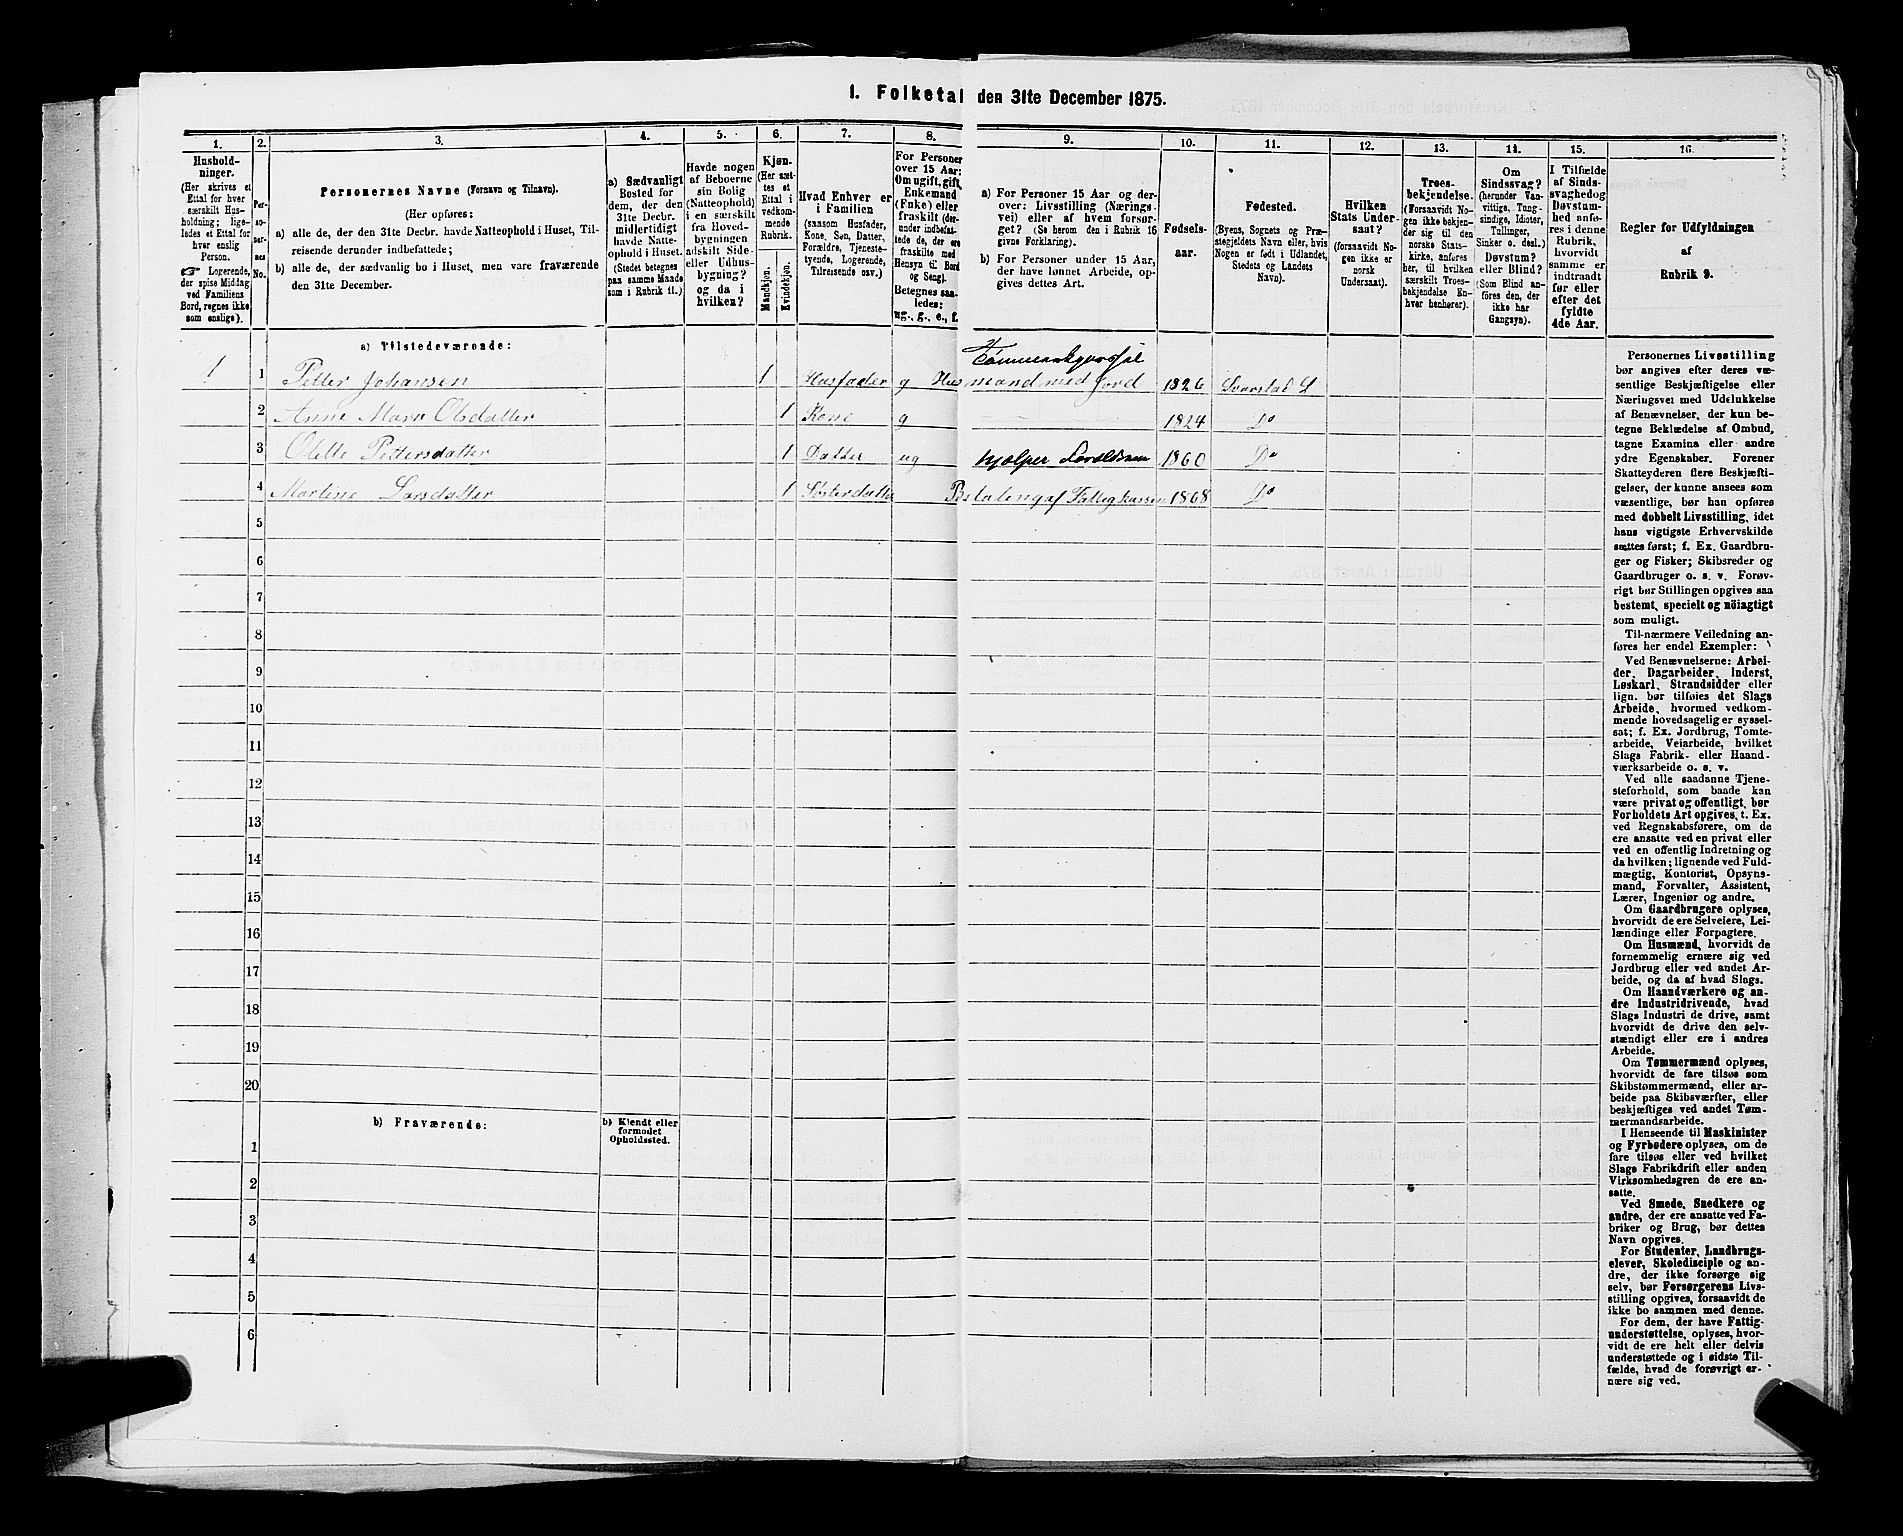 1. Folketal den 31te December 1875.
1.
2.
3.
4.
5.
6.
7.
8.
9.
10.
11.
12.
13.
14.
15.
16.
Hushold-
ninger.
(Her skrives et
Ettal for hver
særskilt Hus-
holdning; lige-
ledes et Ettal for
hver enslig
Person.
☞ Logerende,
der spise Middag
ved Familiens
Bord, regnes ikke
som enslige).
Per-
so-
ner-
nes
No.
Personernes Navne (Fornavn og Tilnavn).
(Her opføres:
a) alle de, der den 31te Decbr. havde Natteophold i Huset, Til-
reisende derunder indbefattede;
b) alle de, der sædvanlig bo i Huset, men vare fraværende
den 31te December.
a) Sædvanligt
Bosted for
dem, der den
31te Decbr.
midlertidigt
havde Natte-
ophold i Huset.
(Stedet betegnes
paa samme Maade
som i Rubrik 11.)
Havde nogen
af Beboerne
sin Bolig
(Natteophold)
i en særskilt
fra Hoved-
bygningen
adskilt Side-
eller Udhus-
bygning?
og da i
hvilken?
Kjøn.
(Her sæt-
tes et
Ettal i
vedkom-
mende
Rubrik.
Mandkjøn.
Kvindekjøn.
Hvad Enhver er
i Familien
(saasom Husfader,
Kone, Søn, Datter,
Forældre, Tjeneste-
tyende, Logerende,
Tilreisende osv.)
For Personer
over 15 Aar:
Om ugift, gift,
Enkemand
(Enke) eller
fraskilt (der-
under indbefat-
tede de, der ere
fraskilte med
Hensyn til Bord
og Seng).
Betegnes saa-
ledes:
ug., g., e., f.
a) For Personer 15 Aar og der-
over: Livsstilling (Nærings-
vei) eller af hvem forsør-
get? (Se herom den i Rubrik 16
givne Forklaring).
b) For Personer under 15 Aar,
der have lønnet Arbeide, op-
gives dettes Art.
Fødsels-
aar.
Fødested.
(Byens, Sognets og Præ-
stegjeldets Navn eller, hvis
Nogen er født i Udlandet,
Stedets og Landets
Navn).
Hvilken
Stats Under-
saat?
(forsaavidt No-
gen ikke er
norsk
Undersaat).
Troes-
bekjendelse.
(Forsaavidt No-
gen ikke bekjen-
der sig til den
norske Stats-
kirke, anføres
her, til hvilken
særskilt Troes-
bekjendelse En-
hver henhører).
Om
Sindssvag?
(herunder Van-
vittige, Tung-
sindige, Idioter,
Tullinger,
Sinker o. desl.)
Døvstum?
eller Blind?
(Som Blind an-
føres den, der
ikke har
Gangsyn).
I Tilfælde
af Sinds-
svaghed og
Døvstum-
hed anfø-
res i denne
Rubrik,
hvorvidt
samme er
indtraadt
før eller
efter det
fyldte
4de Aar.
Regler for Udfyldningen
af
Rubrik 9.
a) Tilstedeværende:
Tømmerkjørsel
1 1 Petter Johansen 1 Husfader g Husmand med Jord 1826 Svarstad
2 Anne Marie Olsdatter 1 Kone g 1824 Do
3 Olette Pettersdatter 1 Datter ug hjælper Forældrene 1860 Do
4 Martine Larsdatter 1 Søsterdatter Betaling af Fattigkassen 1868 Do
5
6
7
8
9
10
11
12
13
14
15
16
17
18
19
20
b) Fraværende:
b) Kjendt eller
formodet
Opholdssted.
1
2
3
4
5
6
Personernes Livsstilling
bør angives efter deres væ-
sentlige Beskjæftigelse eller
Næringsvei med Udelukkelse
af Benævnelser, der kun be-
tegne Beklædelse af Ombud,
tagne Examina eller andre
ydre Egenskaber. Forener
Skatteyderen flere Beskjæfti-
gelser, der kunne ansees som
væsentlige, bør han opføres
med dobbelt Livsstilling, idet
hans vigtigste Erhvervskilde
sættes først; f. Ex. Gaardbru-
ger og Fisker; Skibsreder og
Gaardbruger o. s. v. Forøv-
rigt bør Stillingen opgives saa
bestemt, specielt og nöiagtigt
som muligt.
Til nærmere Veiledning an-
føres her endel Exempler:
Ved Benævnelserne: Arbei-
der, Dagarbeider, Inderst,
Løskarl, Strandsidder eller
lign. bør tilføies det Slags
Arbeide, hvormed vedkom-
mende hovedsagelig er syssel-
sat; f. Ex. Jordbrug, Tomte-
arbeide, Veiarbeide, hvilket
Slags Fabrik- eller Haand-
værksarbeide o. s. v.
Ved alle saadanne Tjene-
steforhold, som baade kan
være privat og offentligt, bør
Forholdets Art opgives, t. Ex.
ved Regnskabsførere, om de
ere ansatte ved en privat eller
ved en offentlig Indretning og
da hvilken; lignende ved Fuld-
mægtig, Kontorist, Opsyns-
mand, Forvalter, Assistent,
Lærer, Ingeniør og andre.
Om Gaardbrugere oplyses,
hvorvidt de ere Selveiere, Lei-
lændinge eller Forpagtere.
Om Husmænd, hvorvidt de
fornemmelig ernære sig ved
Jordbrug eller ved andet Ar-
beide, og da af hvad Slags.
Om Haandværkere og an-
dre Industridrivende, hvad
Slags Industri de drive, samt
hvorvidt de drive den selv-
stændigt eller ere i andres
Arbeide.
Om Tømmermænd oplyses,
hvorvidt de fare tilsøs som
Skibstømmermænd, eller ar-
beide paa Skibsværfter, eller
beskjæftiges ved andet Tøm-
mermandsarbeide.
I Henseende til Maskinister
og Fyrbødere oplyses, om de
fare tilsøs eller ved hvilket
Slags Fabrikdrift eller anden
Virksomhedsgren de ere an-
satte.
Ved Smede, Snedkere og
andre, der ere ansatte ved Fa-
briker og Brug, bør dettes
Navn opgives.
For Studenter, Landbrugs-
elever, Skoledisciple og an-
dre, der ikke forsørge sig
selv, bør Forsørgerens Livs-
stilling opgives, forsaavidt de
ikke bo sammen med denne.
For dem, der have Fattig-
understøttelse, oplyses, hvor-
vidt de ere helt eller delvis
understøttede og i sidste Til-
fælde, hvad de forøvrigt er-
nære sig ved.